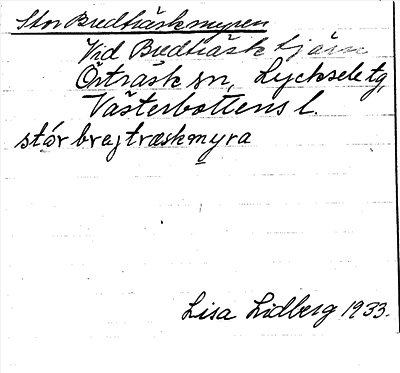 Stor Bredträskmyren
Vid Bredträsktjärn
Örträsk sn, Lycksele tg,
Västerbottens l.
stór brajtræskmyra
Lisa Lidberg 1933.